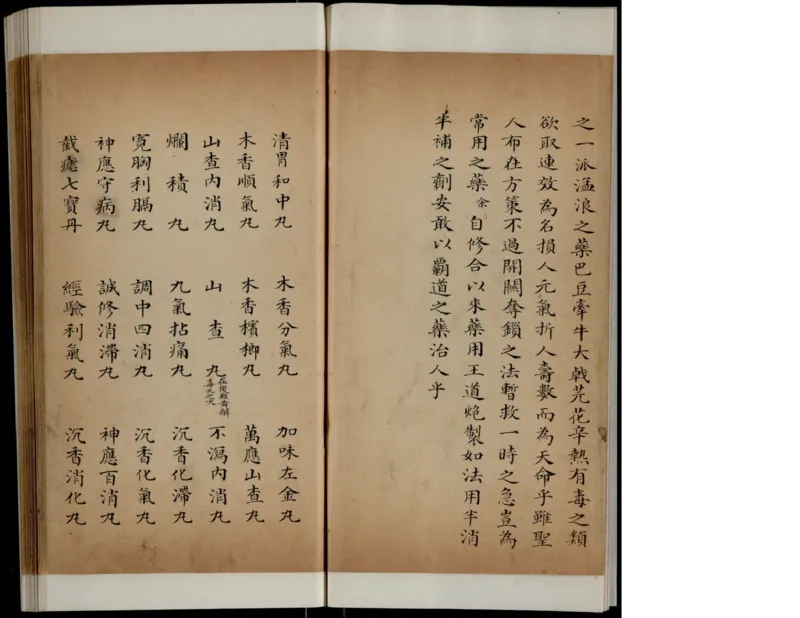 之一派溫浪之藥巴豆牽牛大戟芫花辛熱有毒之類
欲取速效為名損人元氣折人壽數而為天命乎雖聖
人布在方策不過開關奪鎖之法暫救一時之急豈為
常用之藥余自修合以來藥用王道炮製如法用半消
半補之劑安敢以霸道之藥治人乎
清胃和中丸 木香分氣丸 加味左金丸
木香順氣丸 木香檳榔丸 萬應山查丸
山查內消丸 山查丸在後雄黃解毒丸之次 不瀉內消丸
爛積丸 九氣拈痛丸 沉香化滯丸
寬胸利膈丸 調中四消丸 沉香化氣丸
神應守病丸 誠修消滯丸 神應百消丸
截瘧七寶丹 經驗利氣丸 沉香消化丸